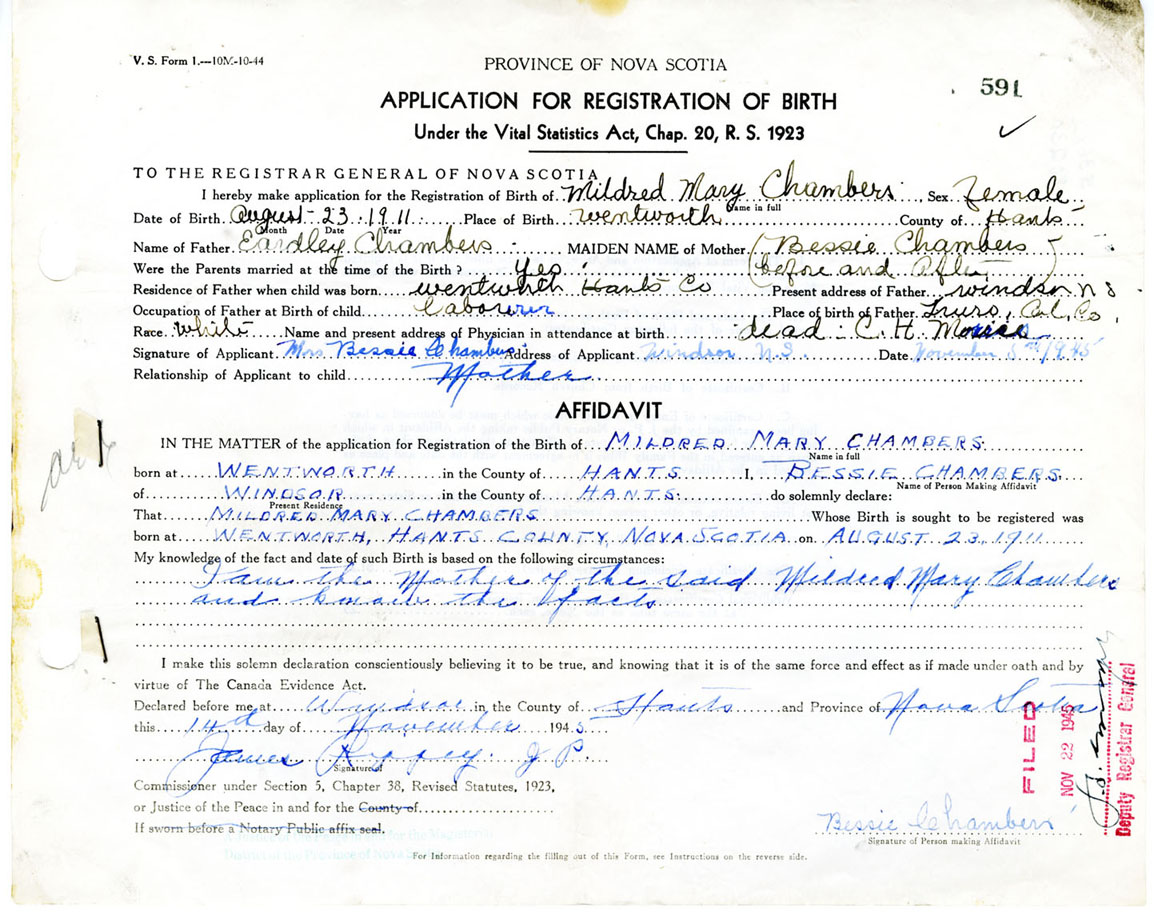 V. S. Form 1.---10M-10-44
PROVINCE OF NOVA SCOTIA
591
APPLICATION FOR REGISTRATION OF BIRTH
Under the Vital Statistics Act, Chap. 20, R. S. 1923
TO THE REGISTRAR GENERAL OF NOVA SCOTIA
I hereby make application for the Registration of Birth of Mildred Mary Chambers, Sex Female
Name in full
Date of Birth August 23. 1911 Place of Birth Wentworth County of Hants
Month Date Year
Name of Father Eardley Chambers MAIDEN NAME of Mother (Bessie Chambers
Were the Parents married at the time of the Birth ? Yes (before and After)
Residence of Father when child was born wentworth Hants Co Present address of Father windsor N S
Occupation of Father at Birth of child labourer Place of birth of Father Truro, Col. Co.
Race White Name and present address of Physician in attendance at birth dead C. H.
Signature of Applicant Mrs Bessie Chambers Address of Applicant Windsor N.S. Date November 1945
Relationship of Applicant to child Mother
AFFIDAVIT
IN THE MATTER of the application for Registration of the Birth of MILDRED MARY CHAMBERS
Name in full
born at WENTWORTH in the County of HANTS I, BESSIE CHAMBERS
Name of Person Making Affidavit
of WINDSOR in the County of HANTS do solemnly declare:
Present Residence
That MILDRED MARY CHAMBERS Whose Birth is sought to be registered was
born at WENTWORTH, HANTS COUNTY, NOVA SCOTIA on AUGUST 23, 1911
My knowledge of the fact and date of such Birth is based on the following circumstances:
I am the Mother of the said Mildred Mary Chambers
and know the facts
I make this solemn declaration conscientiously believing it to be true, and knowing that it is of the same force and effect as if made under oath and by
virtue of The Canada Evidence Act.
Declared before me at Windsor in the County of Hants and Province of Nova Scotia
this 14th day of November 1945
James J P.
Signature of
Commissioner under Section 5, Chapter 38, Revised Statutes, 1923,
or Justice of the Peace in and for the County of
If sworn before a Notary Public affix seal.
for the Magisterial
District of the Province of Nova
Bessie Chambers
Signature of Person making Affidavit
For Information regarding the filling out of this Form, see Instructions on the reverse side.
FILED
NOV 22 1945
Deputy Registrar General